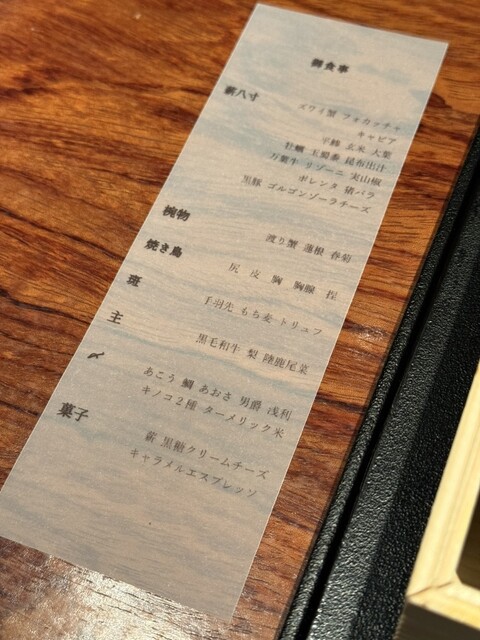 御食事
薪八寸
ズワイ蟹 フォカッチャ
キャビア
平鯵 玄米 大葉
牡蠣 玉蜀黍 昆布出汁
万葉牛 リゾーニ 実山椒
ポレンタ 猪バラ
黒豚 ゴルゴンゾーラチーズ
椀物
渡り蟹 蓮根 春菊
焼き鳥
尻 皮 胸 胸腺 捏
斑
手羽先 もち麦 トリュフ
主
黒毛和牛 梨 陸鹿尾菜
〆
あこう 鯛 あおさ 男爵 浅利
キノコ2種 ターメリック米
菓子
薪 黒糖クリームチーズ
キャラメルエスプレッソ